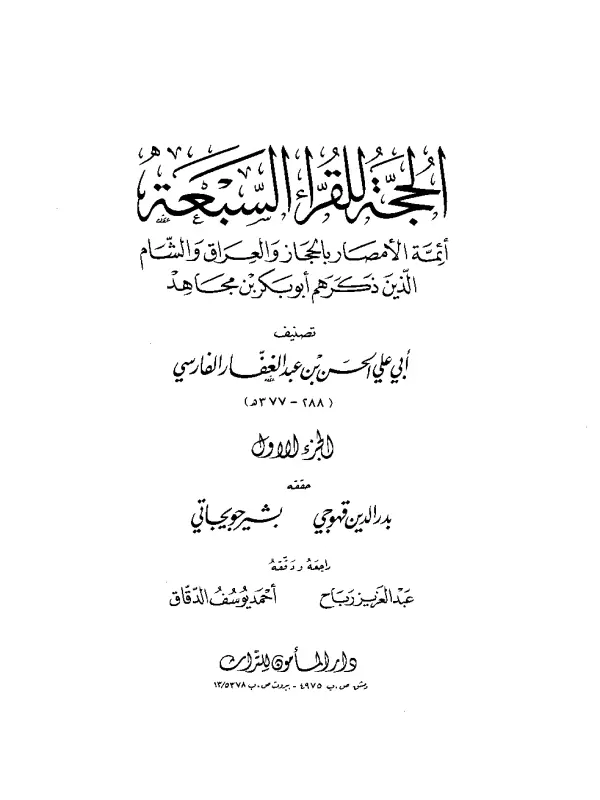 الحُجَّةُ لِلقُرَّاءِ السَّبْعَةِ
أئِمَّة الأمصَار بالحجَاز وَالعِرَاق وَالشَّام
الذينَ ذكَرَهم أبو بكر بْن مجَاهِدْ
تصنيف
أبي علي الحسَن بْن عبد الغفّار الفارسي
(٢٨٨ - ٣٧٧ ه)
الجزء الأول
حققه
بدر الدين قهوجي بشير جويجاتي
راجعَهُ ودَقّقهُ
عَبْد العَزيز رَبَاح أحمَد يُوسُف الدّقاق
دار المأمون للتراث
دمشق ص.ب ٤٩٧٥ - بيروت ص.ب ١٣/٥٣٧٨